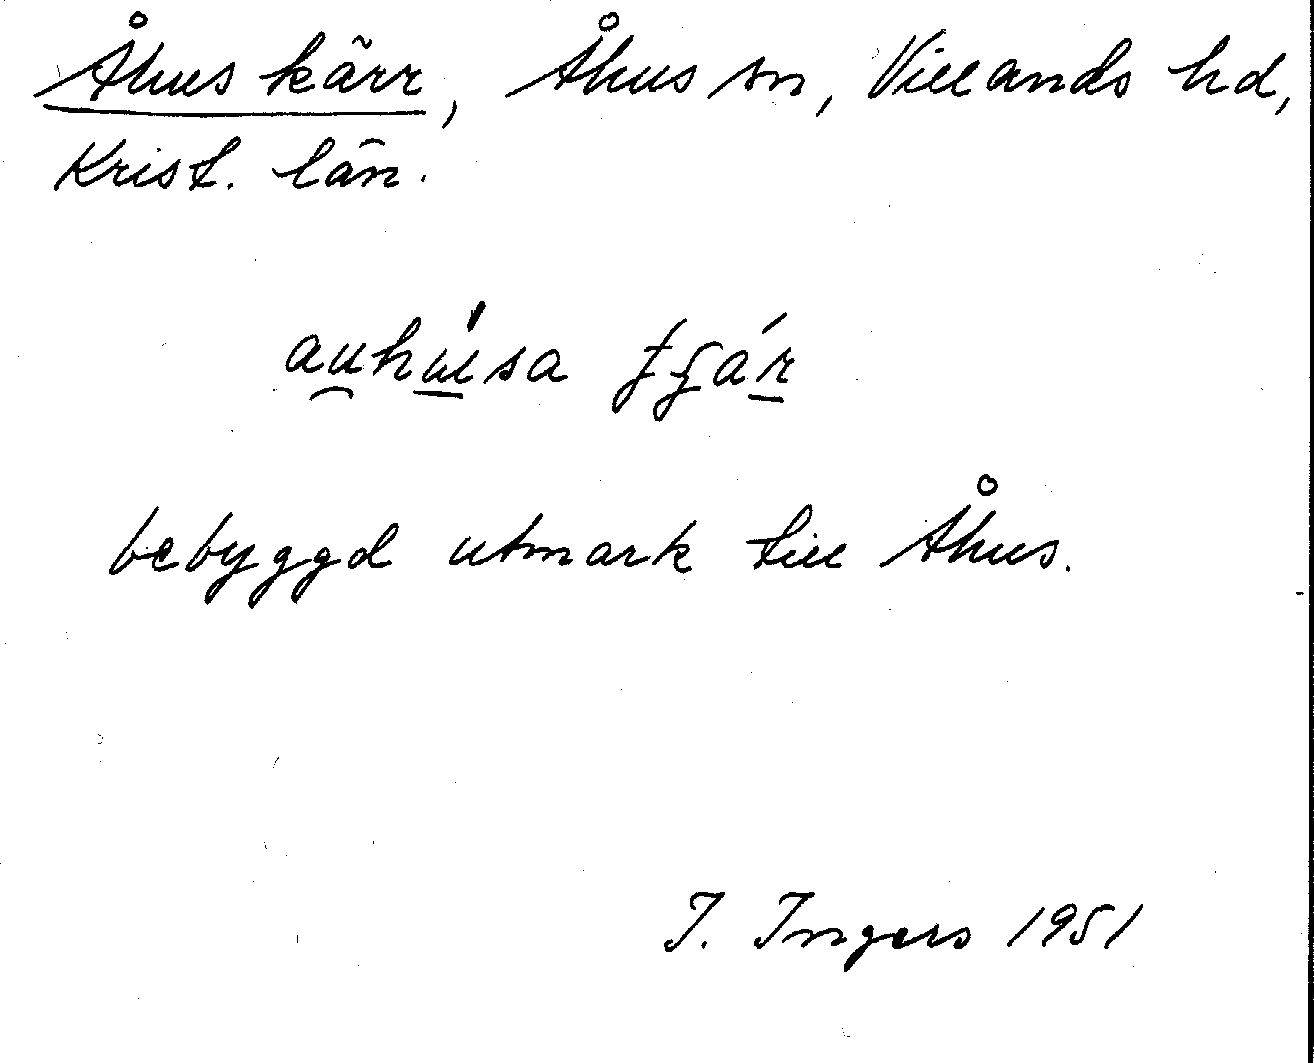 Åhus kärr, Åhus sn, Villands hd,
Krist. län.
au̯hu̲í̲sa ʈʂár̲
bebyggd utmark till Åhus.
I. Ingers 1951